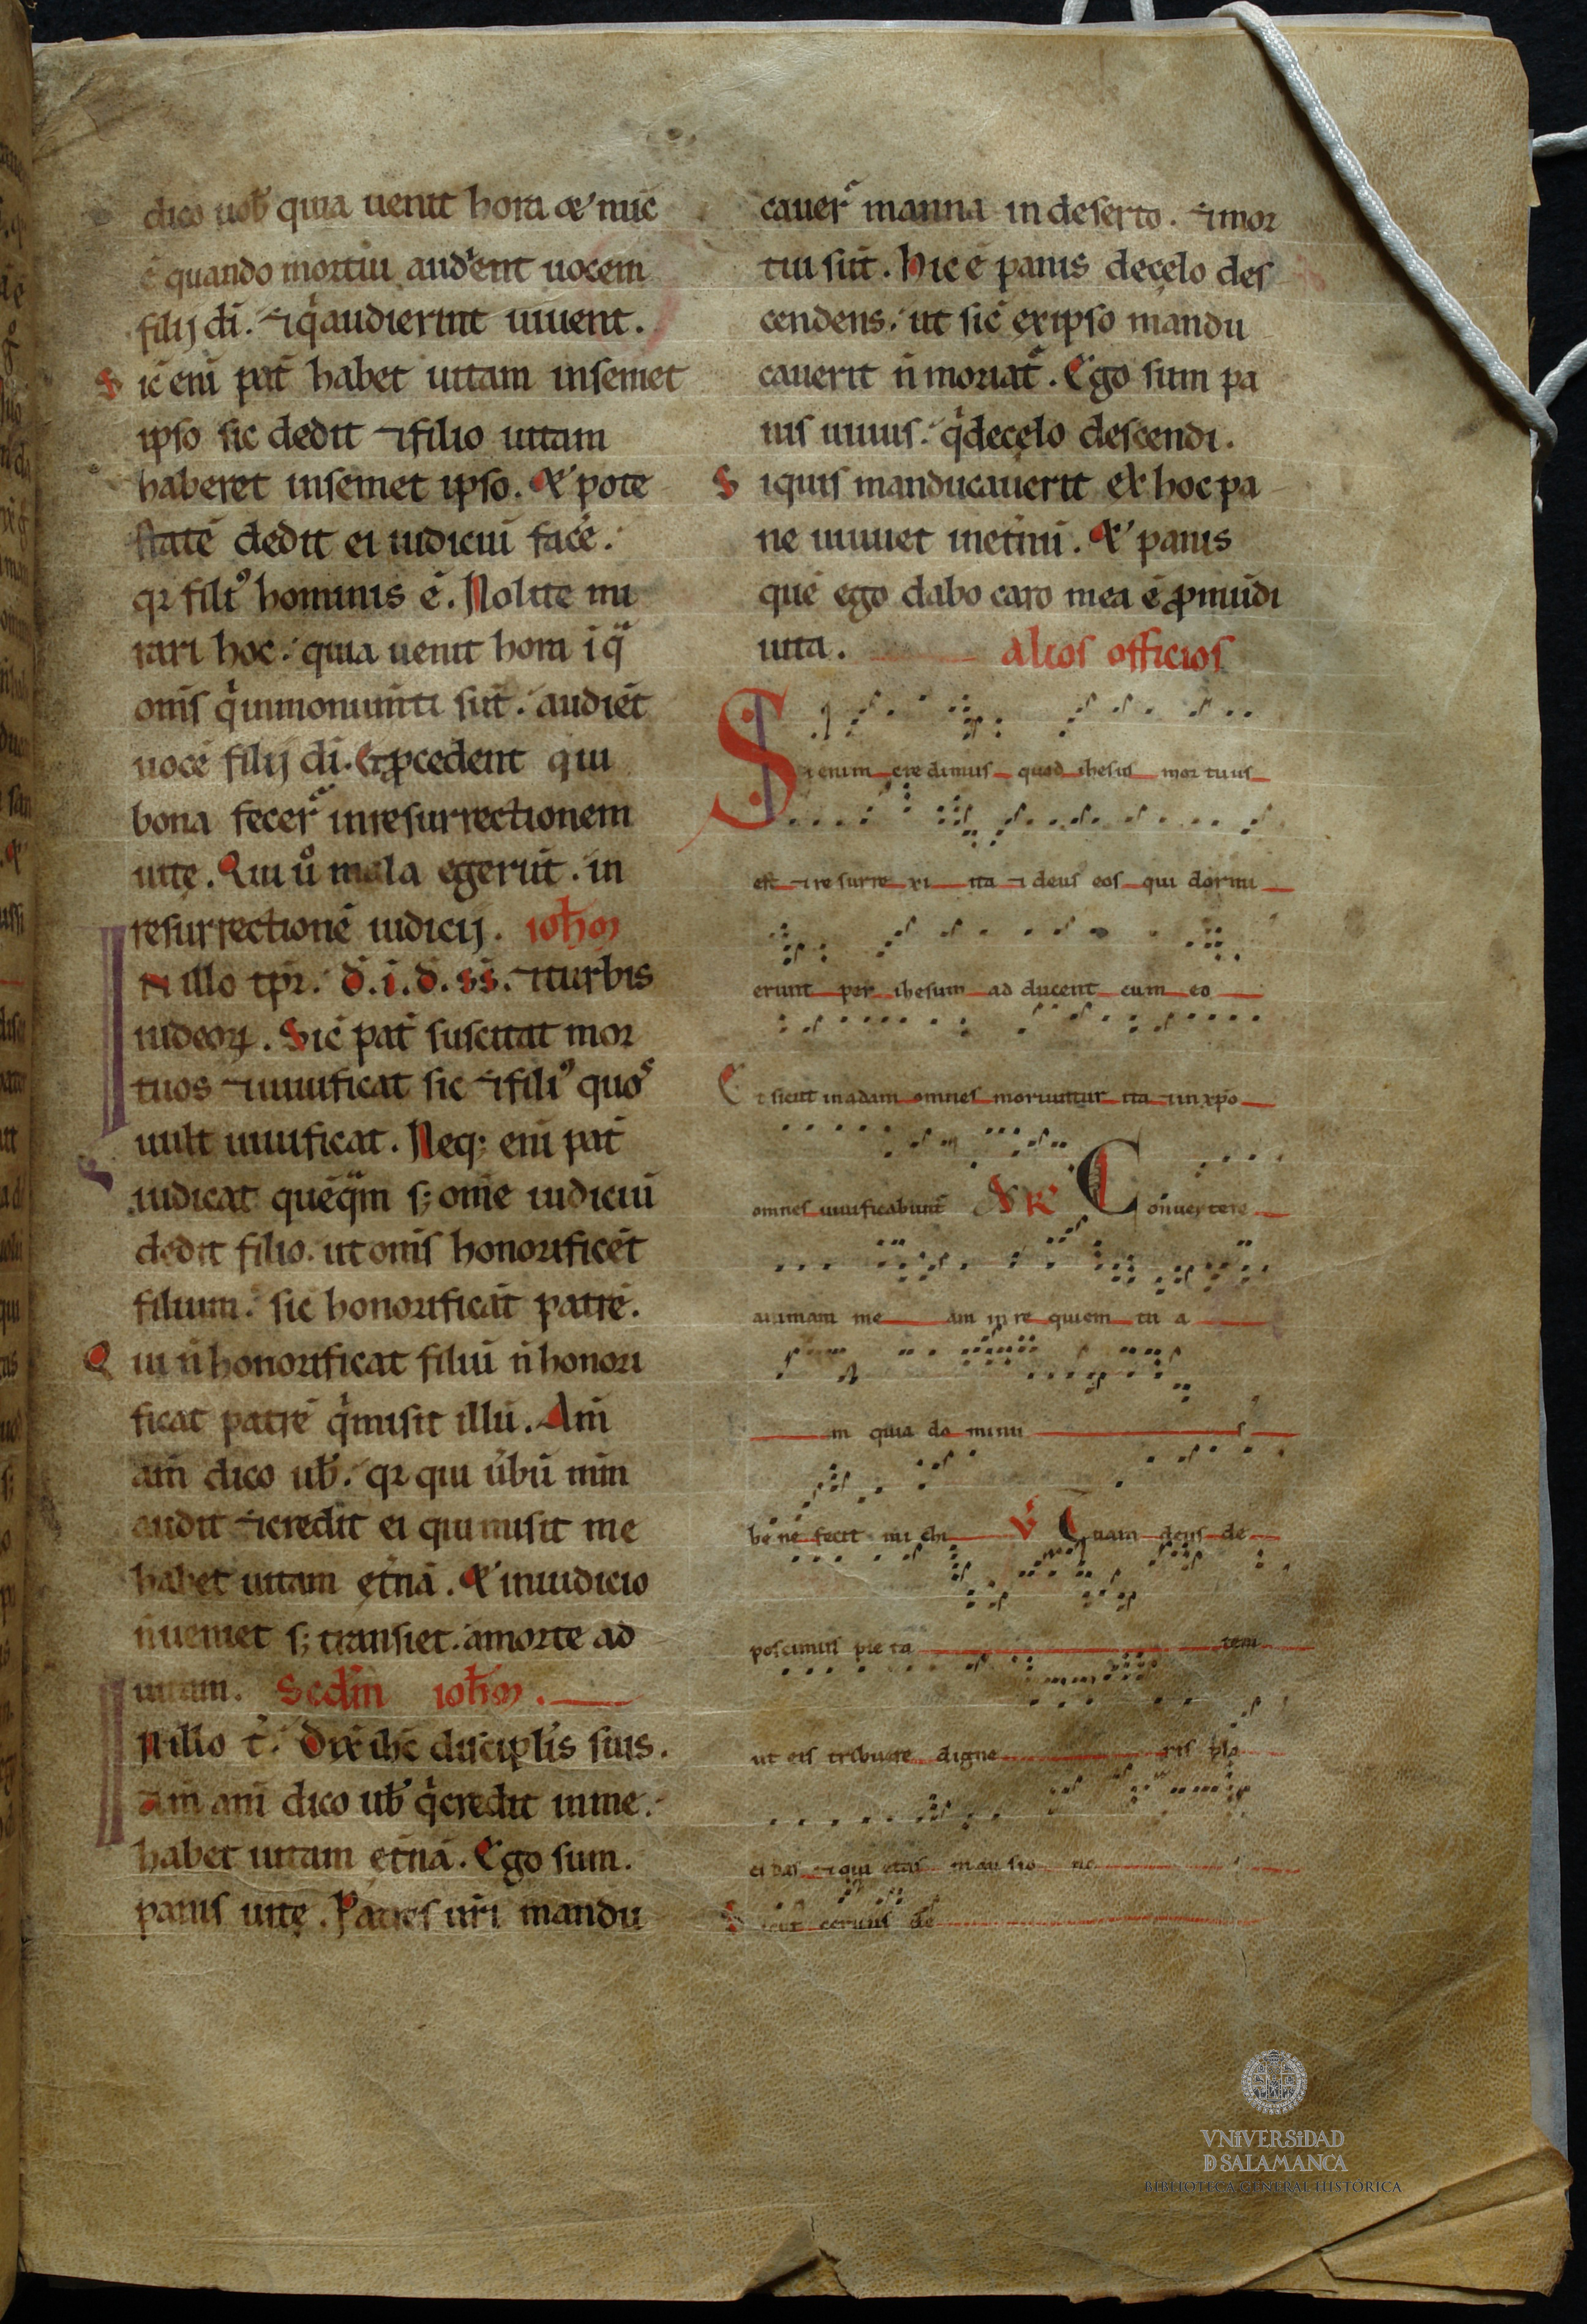 dico uob̕ quia uenit hora & nūc
ē quando mortui audient uocem
filij di̅. ⁊ q̇ audierint uiuent.
Sic̄ eni̅ pat̄ habet uitam insemet
ipso sic dedit ⁊ filio uitam
haberet insemet ipso. Et pote
statē dedit ei iudiciū facē.
qr filiꝰ hominis ē. Nolite mi
rari hoc. quia uenit hora ī qᵃ
om̄s q̇ inmonum̄ti sūt. audiēt
uocē filij di̅. Et ꝓcedent qui
bona fecer̄ inresurrectionem
uite. Qui ůo mala egerūt. in
resurrectionē iudicij. ioħm
IN illo tp̄r. d.i.d.ss. ⁊ turbis
iudeoꝝ. Sic̄ pat̄ suscitat mor
tuos ⁊ uiuificat sic ⁊ filiꝰ quoˢ
uult uiuificat. Neq; eni̅ pat̄
iudicat quēqᵃm s; om̄e iudiciū
dedit filio. ut om̄s honorificēt
filium. sic honorificāt patrē.
Qui n̄ honorificat filiū n̄ honori
ficat patrē q̇ misit illū. Am̄
am̄ dico ub̕. qr qui u̇bū mm̄
audit ⁊ credit ei qui misit me
habet uitam et̄nā. Et iniudicio
n̄ ueniet s; transiet. amorte ad
uitam. Scdm̄ ioħm.
IN illo t̄. Dix̄ ihc̄ discipl̄is suis.
Am̄ am̄ dico ub̕ q̇ credit inme.
habet uitam et̄nā. Ego sum.
panis uitę. Patres ur̄i mandu
cauer̄ manna indeserto. ⁊ mor
tui sūt. Hic ē panis decęlo des
cendens. ut sic̄ exipso mandu
cauerit n̄ moriat̄. Ego sum pa
nis uiuus. q̇ decęlo descendi.
Siquis manducauerit ex hoc pa
ne uiuuet inet̄nū. Et panis
quē ego dabo caro mea ē ꝓ mūdi
uita. alios officios
Si enim credimus quod ihesus mortuus
est ⁊ resurrexi ita ⁊ deus eos qui dormi
erunt per ihesum ad ducent cum eo
Et sicut inadam omnes moriuntur ita ⁊ inxp̄o
omnes uiuificabunt̄ R̄ Conuertere
animam me am inre quiem tu a
m quia do minu s
be ne fecit mi chi V̄ Quam deus de
poscimus pie ta tem
ut eis tribuere digne ris pla
ci das ⁊ qui etas man sio ne s
Sicut ceruus de
VNiVERSiDAD
D SALAMANCA
BIBLIOTECA GENERAL HISTÓRICA